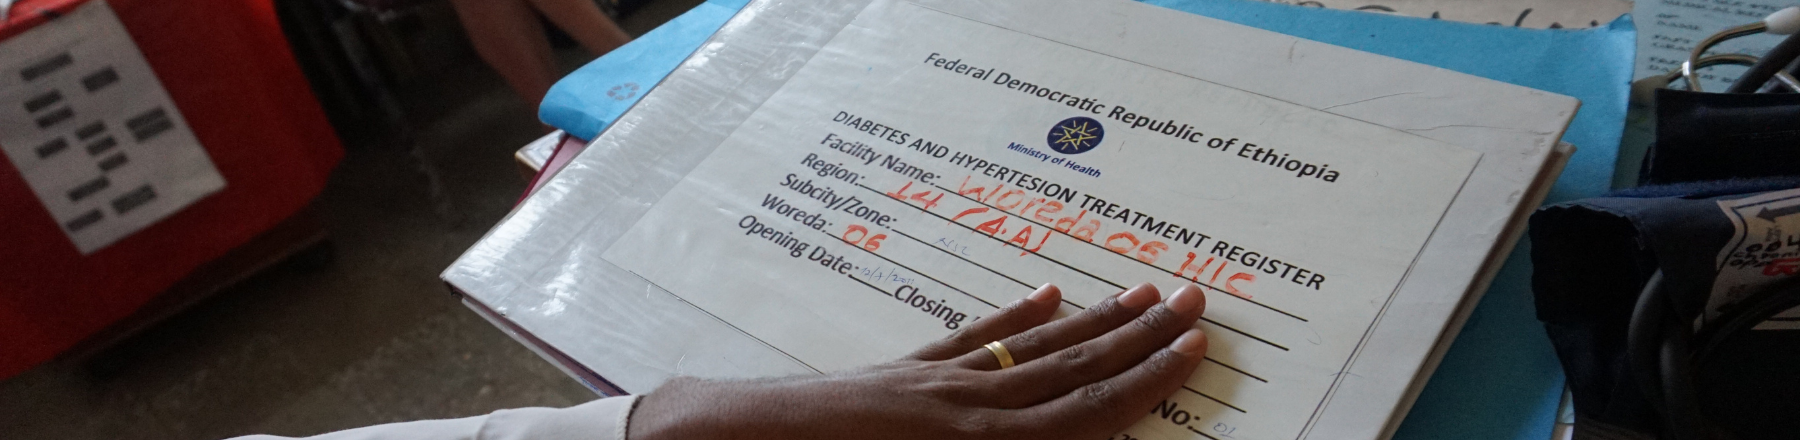 Federal Democratic Republic of Ethiopia
Ministry of Health
DIABETES AND HYPERTESION TREATMENT REGISTER
Facility Name: Woreda 06 H/C
Region: 14 (A.A)
Subcity/Zone: NIL
Woreda: 06
Opening Date:
Closing
No: 01